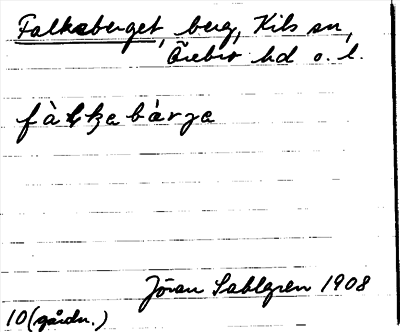 Falkaberget, berg, Kils sn,
Örebro hd o. l.
Jöran Sahlgren 1908
10 (gårdn.)